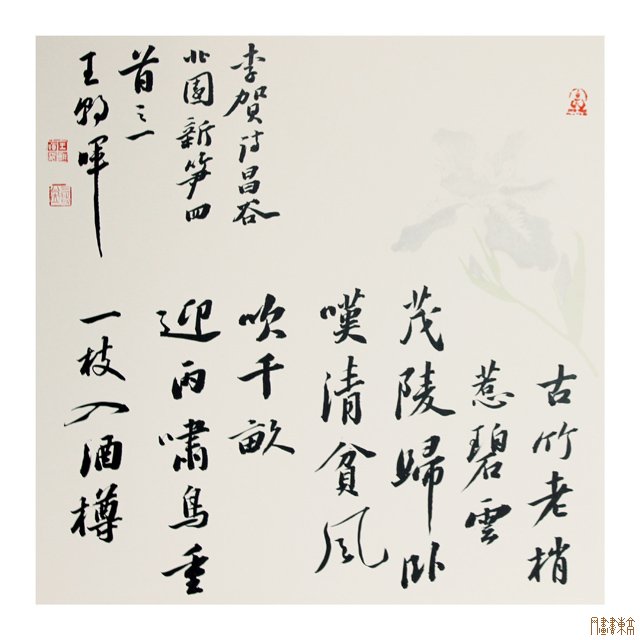 古竹老梢
惹碧雲
茂陵歸臥
嘆清貧風
吹千畝
迎雨嘯鳥重
一枝入酒樽
李賀诗昌谷
北園新笋四
首之一
王朝暉